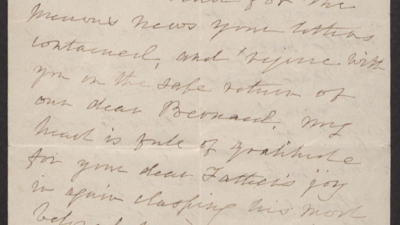 for the
news your letters
contained, and rejoice with
you in the safe return of
our dear Bernard. My
heart is full of gratitude
for your dear Father's joy
in again clasping his most